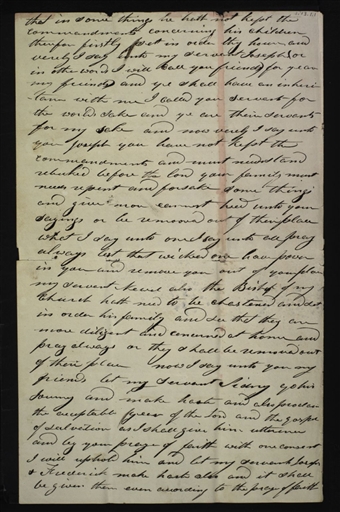 that in some things he hath not kept the
commandments concerning his children
therefor firstly set in order thy house and
verely I say unto my servent Joseph or
in other words I will call you friends for you are
my friends and ye shall have an inheri
tance with me I called you servents for
the worlds sake and ye are their servents
for my sake and now verely I say unto
you Joseph you have not kept the
commandments and must needs stand
rebuked before the lord your family must
needs repent and forsake some things
and give more earnest heed unto your
sayings or be removed out of their place
what I say unto one I say unto all pray
always lest that wicked one have power
in you and remove you out of your place
my servent also the Bishop of my
Church hath need to be chastened and set
in order his family and see that they are
more diligent and concerned at home and
pray always or they shall be removed out
of their place now I say unto you my
friends let my servent Sidney go his
Journy and make hast and also proclaim
the acceptable year of the Lord and the gospel
of salvation as I shall give him utterance
and by your prayer of faith with one consent
I will uphold him and let my servents Joseph
& Frederick make hast also and it shall
be given them even according to the prayer of faith